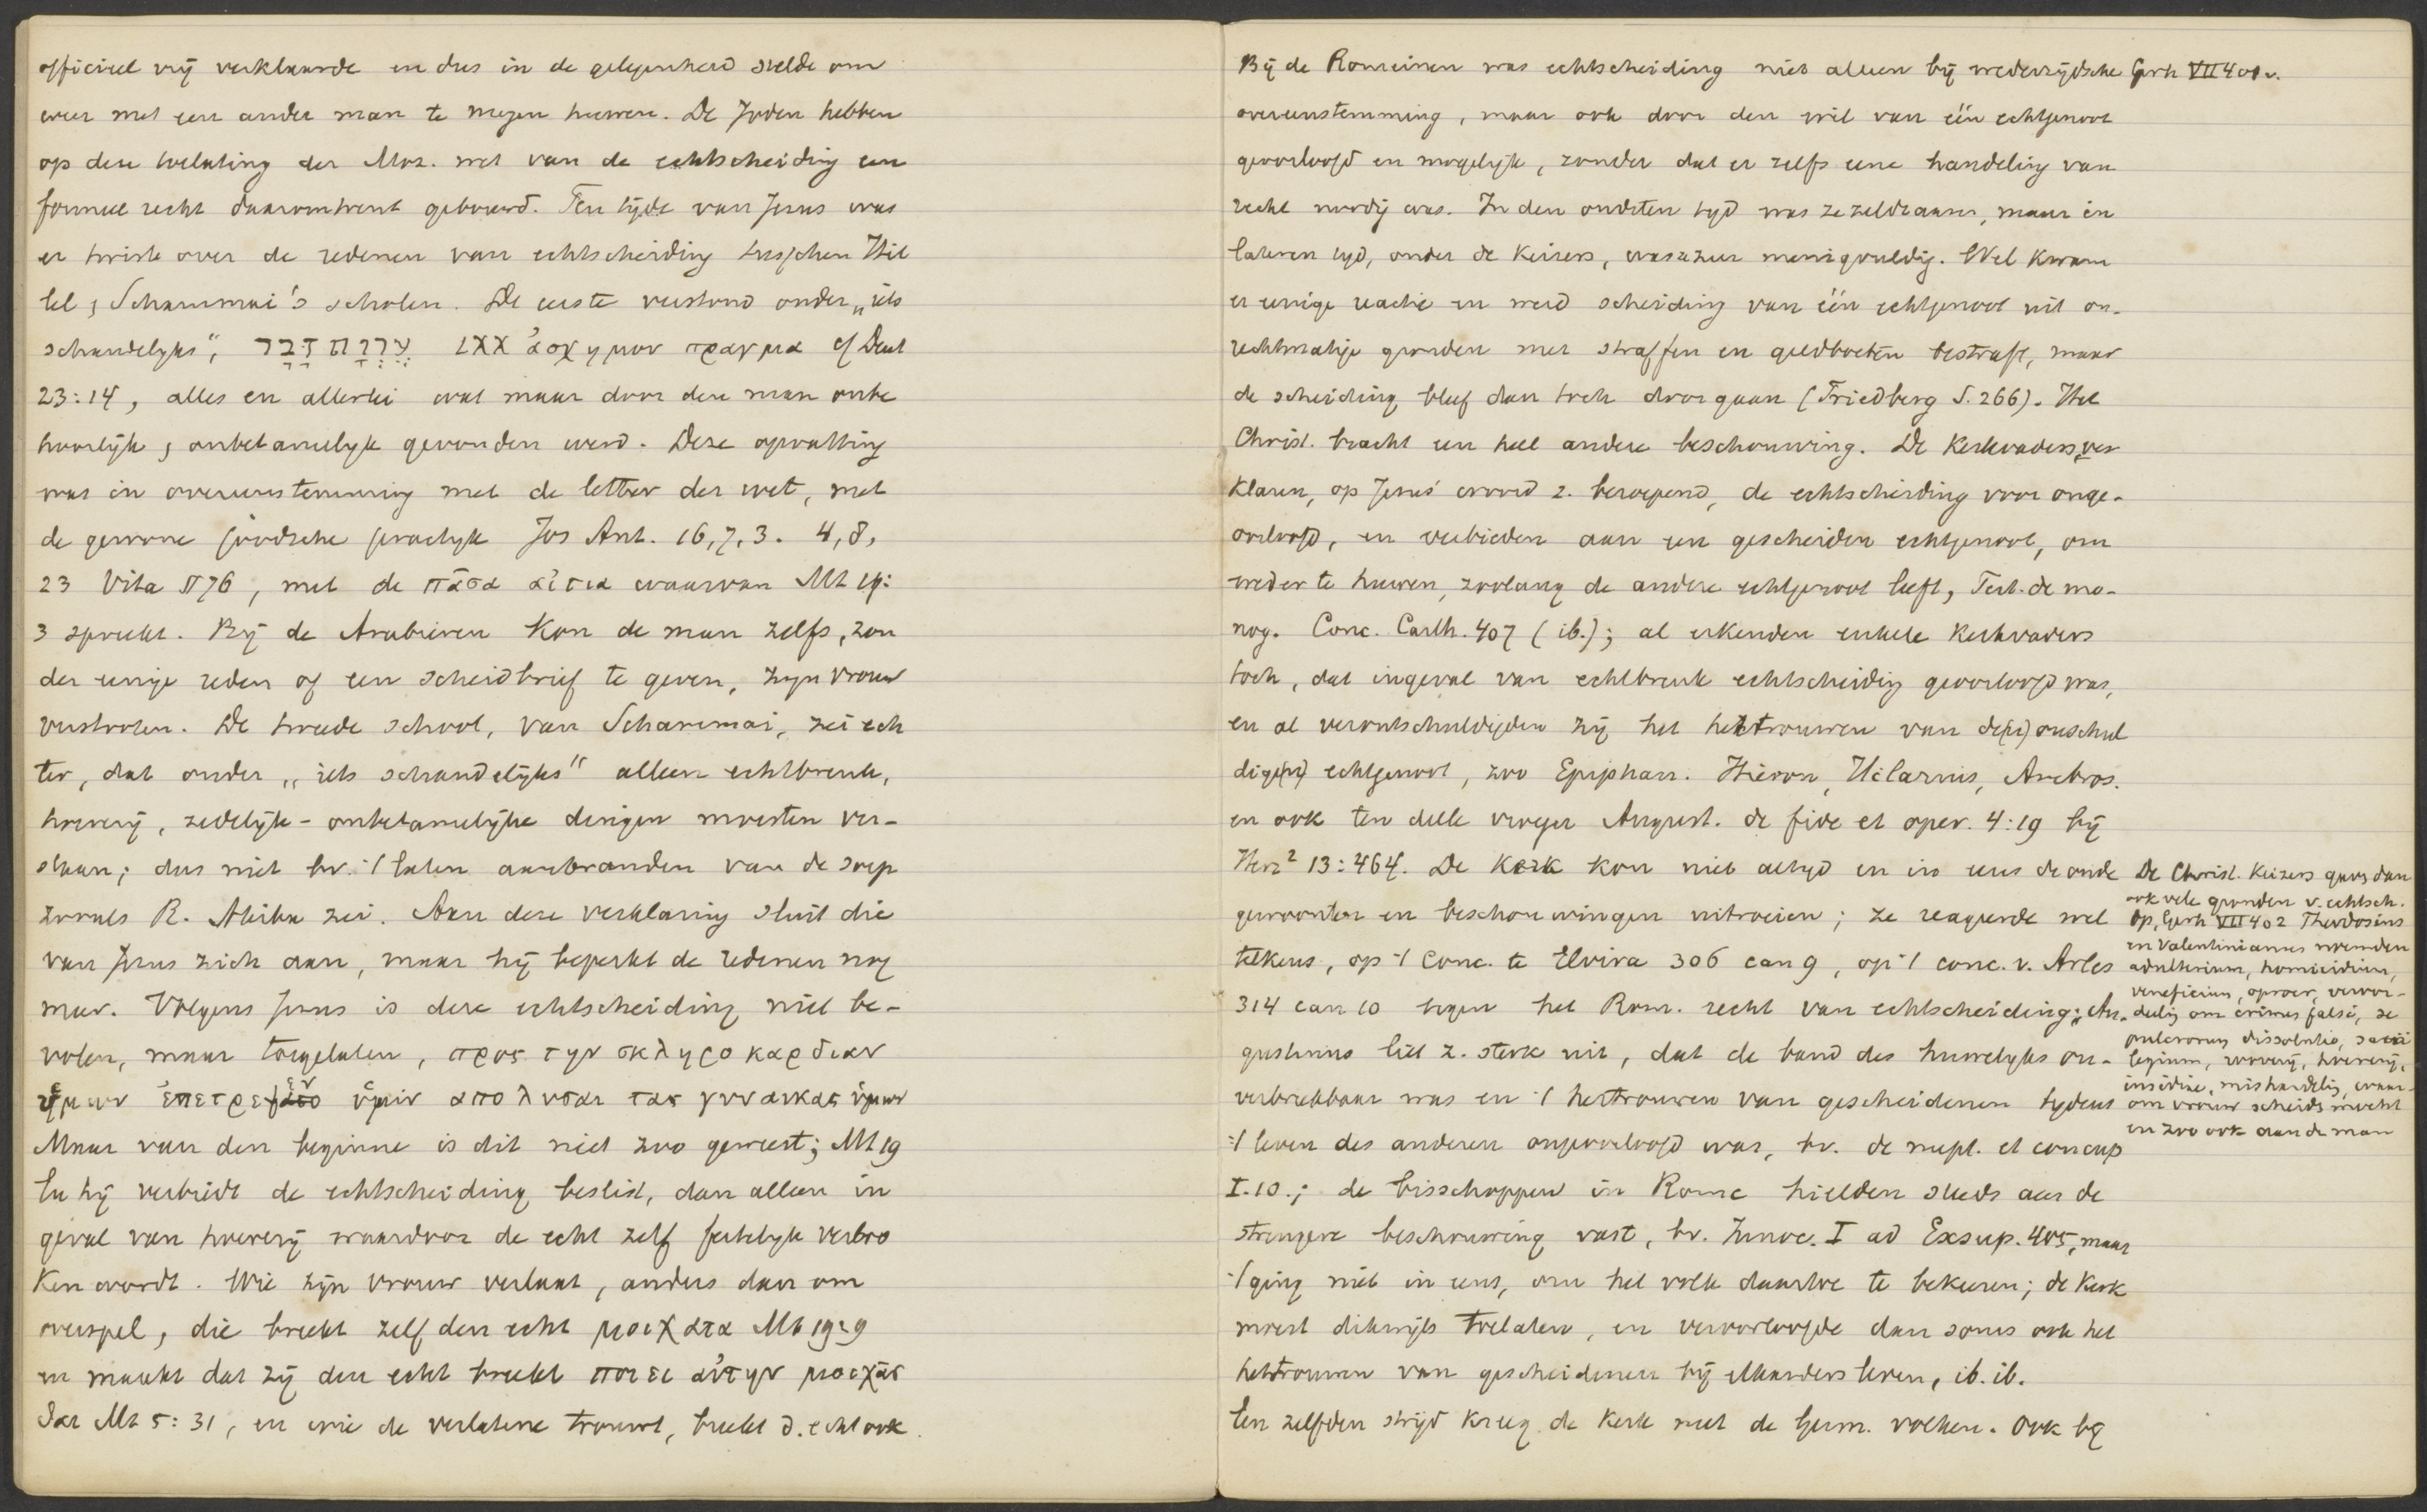 officieel vrij verklaarde en dus in de gelegenheid stelde om
weer met een ander man te mogen huwen. De Joden hebben
op deze toelating der Moz. wet van de echtscheiding een
formeel recht daaromtrent gebouwd. Ten tijde van Jezus was
er twist over de redenen van echtscheiding tusschen Hil
lel & Schammai's scholen. De eerste verstond onder „iets
schandelijks", עֶרְוַת דָּבָר LXX ἀσχημον πραγμα cf Deut
23:14, alles en allerlei wat maar door den man onbe
hoorlijk & onbetamelijk gevonden werd. Deze opvatting
was in overeenstemming met de letter der wet, met
de gewone joodsche practijk Jos Ant. 16,7,3. 4,8,
23 Vita § 76, met de πᾶσα αἰτια waarvan Mt 19:
3 spreekt. Bij de Arabieren kon de man zelfs, zon
der eenige reden of een scheidbrief te geven, zijn vrouw
verstooten. De tweede school, van Schammai, zei ech
ter, dat onder „iets schandelijks" alleen echtbreuk,
hoererij, zedelijk-onbetamelijke dingen moesten ver-
staan; dus niet bv. 't laten aanbranden van de soep
zooals R. Akiba zei. Aan deze verklaring sluit die
van Jezus zich aan, maar hij beperkt de redenen nog
meer. Volgens Jezus is deze echtscheiding niet be-
volen, maar toegelaten, προς την σκληροκαρδιαν
ὑμων ἐπετρεψεν ὑμιν απολυσαι τας γυναικας ὑμων
Maar van den beginne is dit niet zoo geweest; Mt 19
En hij verbiedt de echtscheiding beslist, dan alleen in
geval van hoererij waardoor de echt zelf feitelijk verbro
ken wordt. Wie zijn vrouw verlaat, anders dan om
overspel, die breekt zelf den echt μοιχαται Mt 19:9
en maakt dat zij den echt breekt ποιει αὐτην μοιχᾶσ
θαι Mt 5:31, en wie de verlatene trouwt, breekt d. echt ook.
Bij de Romeinen was echtscheiding niet alleen bij wederzijdsche Gerh VII 401 v.
overeenstemming, maar ook door den wil van één echtgenoot
geoorloofd en mogelijk, zonder dat er zelfs eene handeling van
recht noodig was. In den oudsten tijd was ze zeldzaam, maar in
lateren tijd, onder de keizers, was ze zeer menigvuldig. Wel kwam
er eenige reactie en werd scheiding van één echtgenoot uit on-
rechtmatige gronden met straffen en geldboeten bestraft, maar
de scheiding bleef dan toch doorgaan (Friedberg S. 266). Het
Christ. bracht een heel andere beschouwing. De kerkvaders ver
klaren, op Jezus' woord z. beroepend, de echtscheiding voor onge-
oorloofd, en verbieden aan een gescheiden echtgenoot, om
weder te huwen, zoolang de andere echtgenoot leeft, Tert. de mo-
nog. Conc. Carth. 407 (ib.); al erkenden enkele kerkvaders
toch, dat ingeval van echtbreuk echtscheiding geoorloofd was,
en al verontschuldigden zij het hertrouwen van de(n) onschul
dige(n) echtgenoot, zoo Epiphan. Hieron, Hilarius, Ambros.
en ook ten deele vroeger August. de fide et oper. 4:19 bij
Herz² 13:464. De kerk kon niet altijd en in eens de oude
gewoonten en beschouwingen uitroeien; ze reageerde wel
telkens, op 't Conc. te Elvira 306 can 9, op 't conc. v. Arles
314 can 10 tegen het Rom. recht van echtscheiding; Au-
gustinus liet z. sterk uit, dat de band des huwelijks on-
verbreekbaar was en 't hertrouwen van gescheidenen tijdens
't leven des anderen ongeoorloofd was, bv. de nupt. et concup
I.10.; de bisschoppen in Rome hielden steeds aan de
strengere beschouwing vast, bv. Innoc. I ad Exsup. 405, maar
't ging niet in eens, om het volk daartoe te bekeeren; de kerk
moest dikwijls toelaten, en veroorloofde dan soms ook het
hertrouwen van gescheidenen bij elkanders leven, ib. ib.
Een zelfden strijd kreeg de kerk met de Germ. volken. Ook bij
De Christ. Keizers gaven dan
ook vele gronden v. echtsch.
op, Gerh VII 402 Theodosius
en Valentinianus noemden
adulterium, homicidium,
veneficium, oproer, veroor-
deelig om crimen falsi, se
pulcrorum dissolutio, sacri
legium, rooverij, hoererij,
insidiae, mishandelig, waar-
om vrouw scheide mocht
en zoo ook aan de man